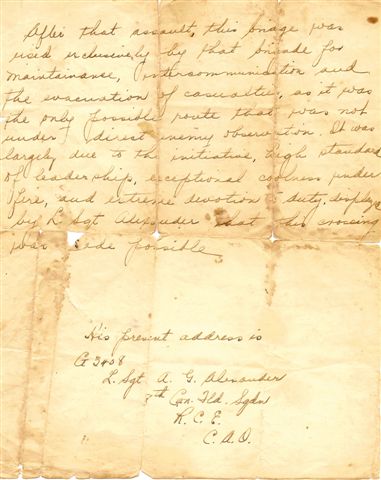 After that assault, this bridge was
used exclusively by that brigade for
maintainance, intercommunication and
the evacuation of casualties, as it was
the only possible route that was not
under direct enemy observation. It was
largely due to the initiative, high standard
of leadership, exceptional coolness under
fire, and extreme devotion to duty, display
by L. Sgt Alexander that this crossing
was made possible
His present address is
G 3408
L. Sgt A. G. Alexander
7th Can. Fld. Sqdn
R. C. E.
C. A. O.